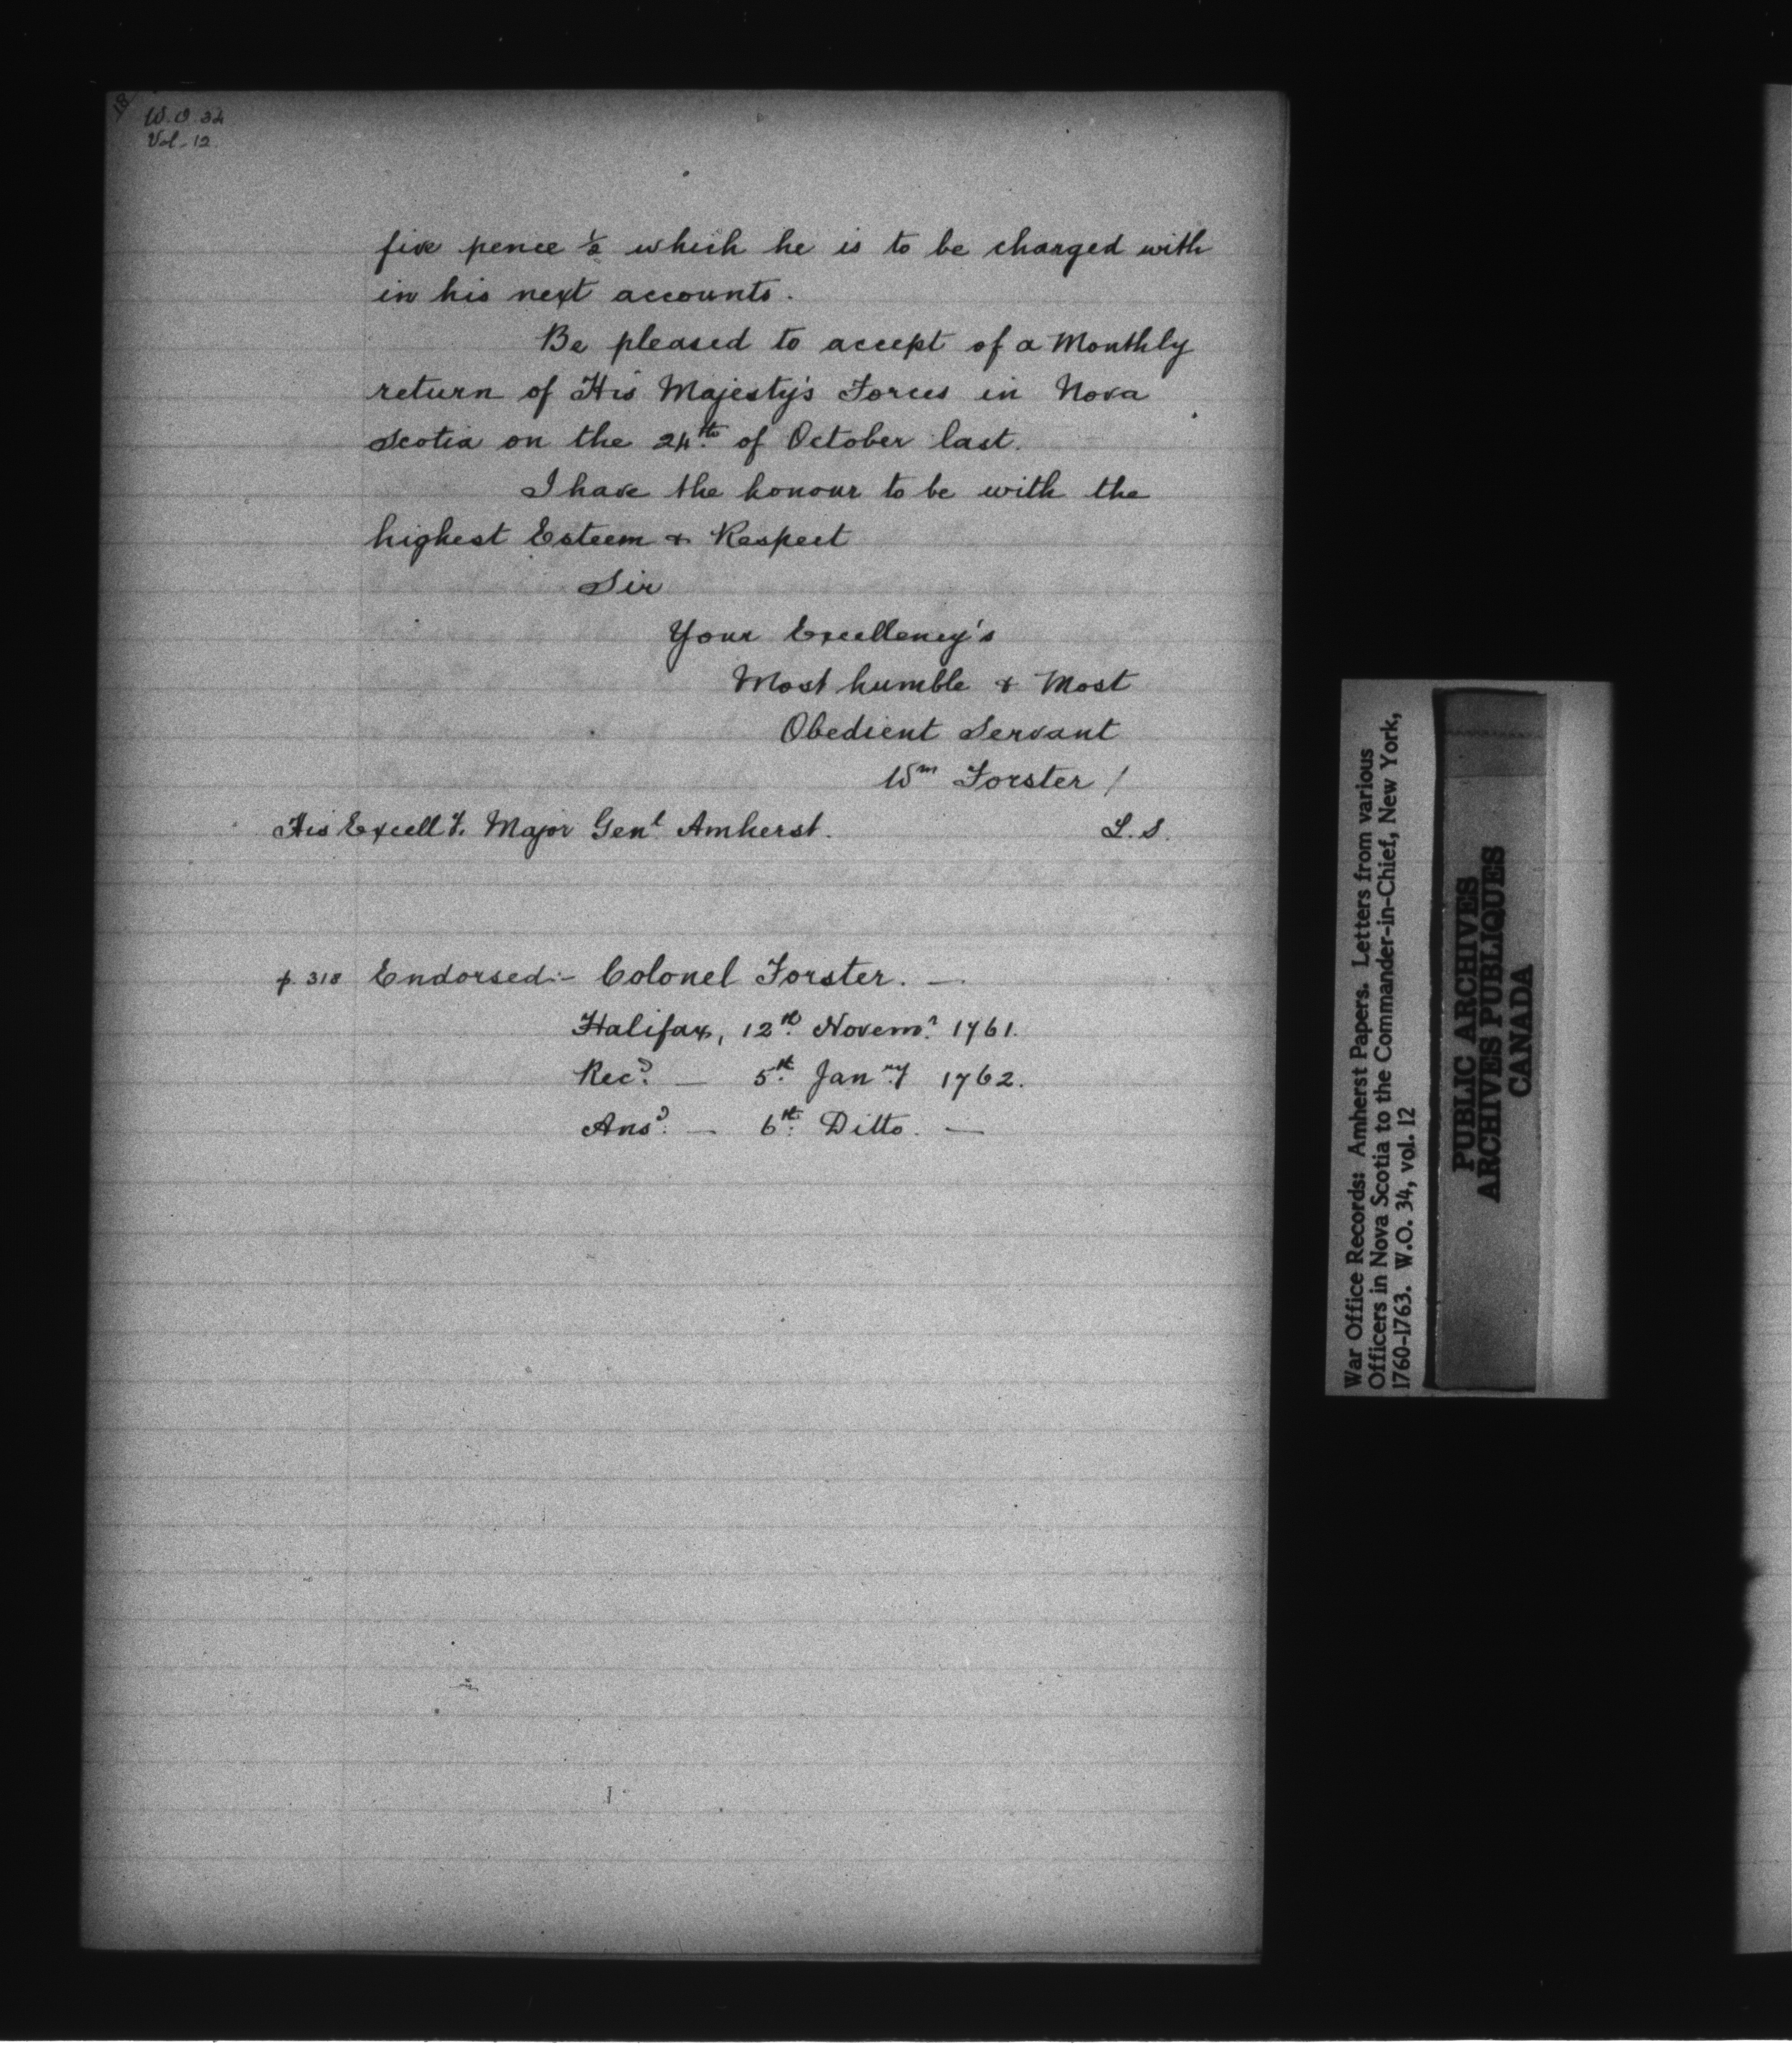 18
W.O. 34
Vol. 12.
five pence ½ which he is to be charged with
in his next accounts.
Be pleased to accept of a Monthly
return of His Majesty's Forces in Nova
Scotia on the 24th of October last.
I have the honour to be with the
highest Esteem & Respect
Sir
Your Excellency's
Most humble & Most
Obedient Servant
Wm Forster /
His Excell'y. Major Genl Amherst. L.S.
p. 318 Endorsed:- Colonel Forster. —
Halifax, 12th Novemr. 1761.
Recd. — 5th Janry 1762.
Ansd. — 6th Ditto. —
War Office Records: Amherst Papers. Letters from various
Officers in Nova Scotia to the Commander-in-Chief, New York,
1760-1763. W.O. 34, vol. 12
PUBLIC ARCHIVES
ARCHIVES PUBLIQUES
CANADA